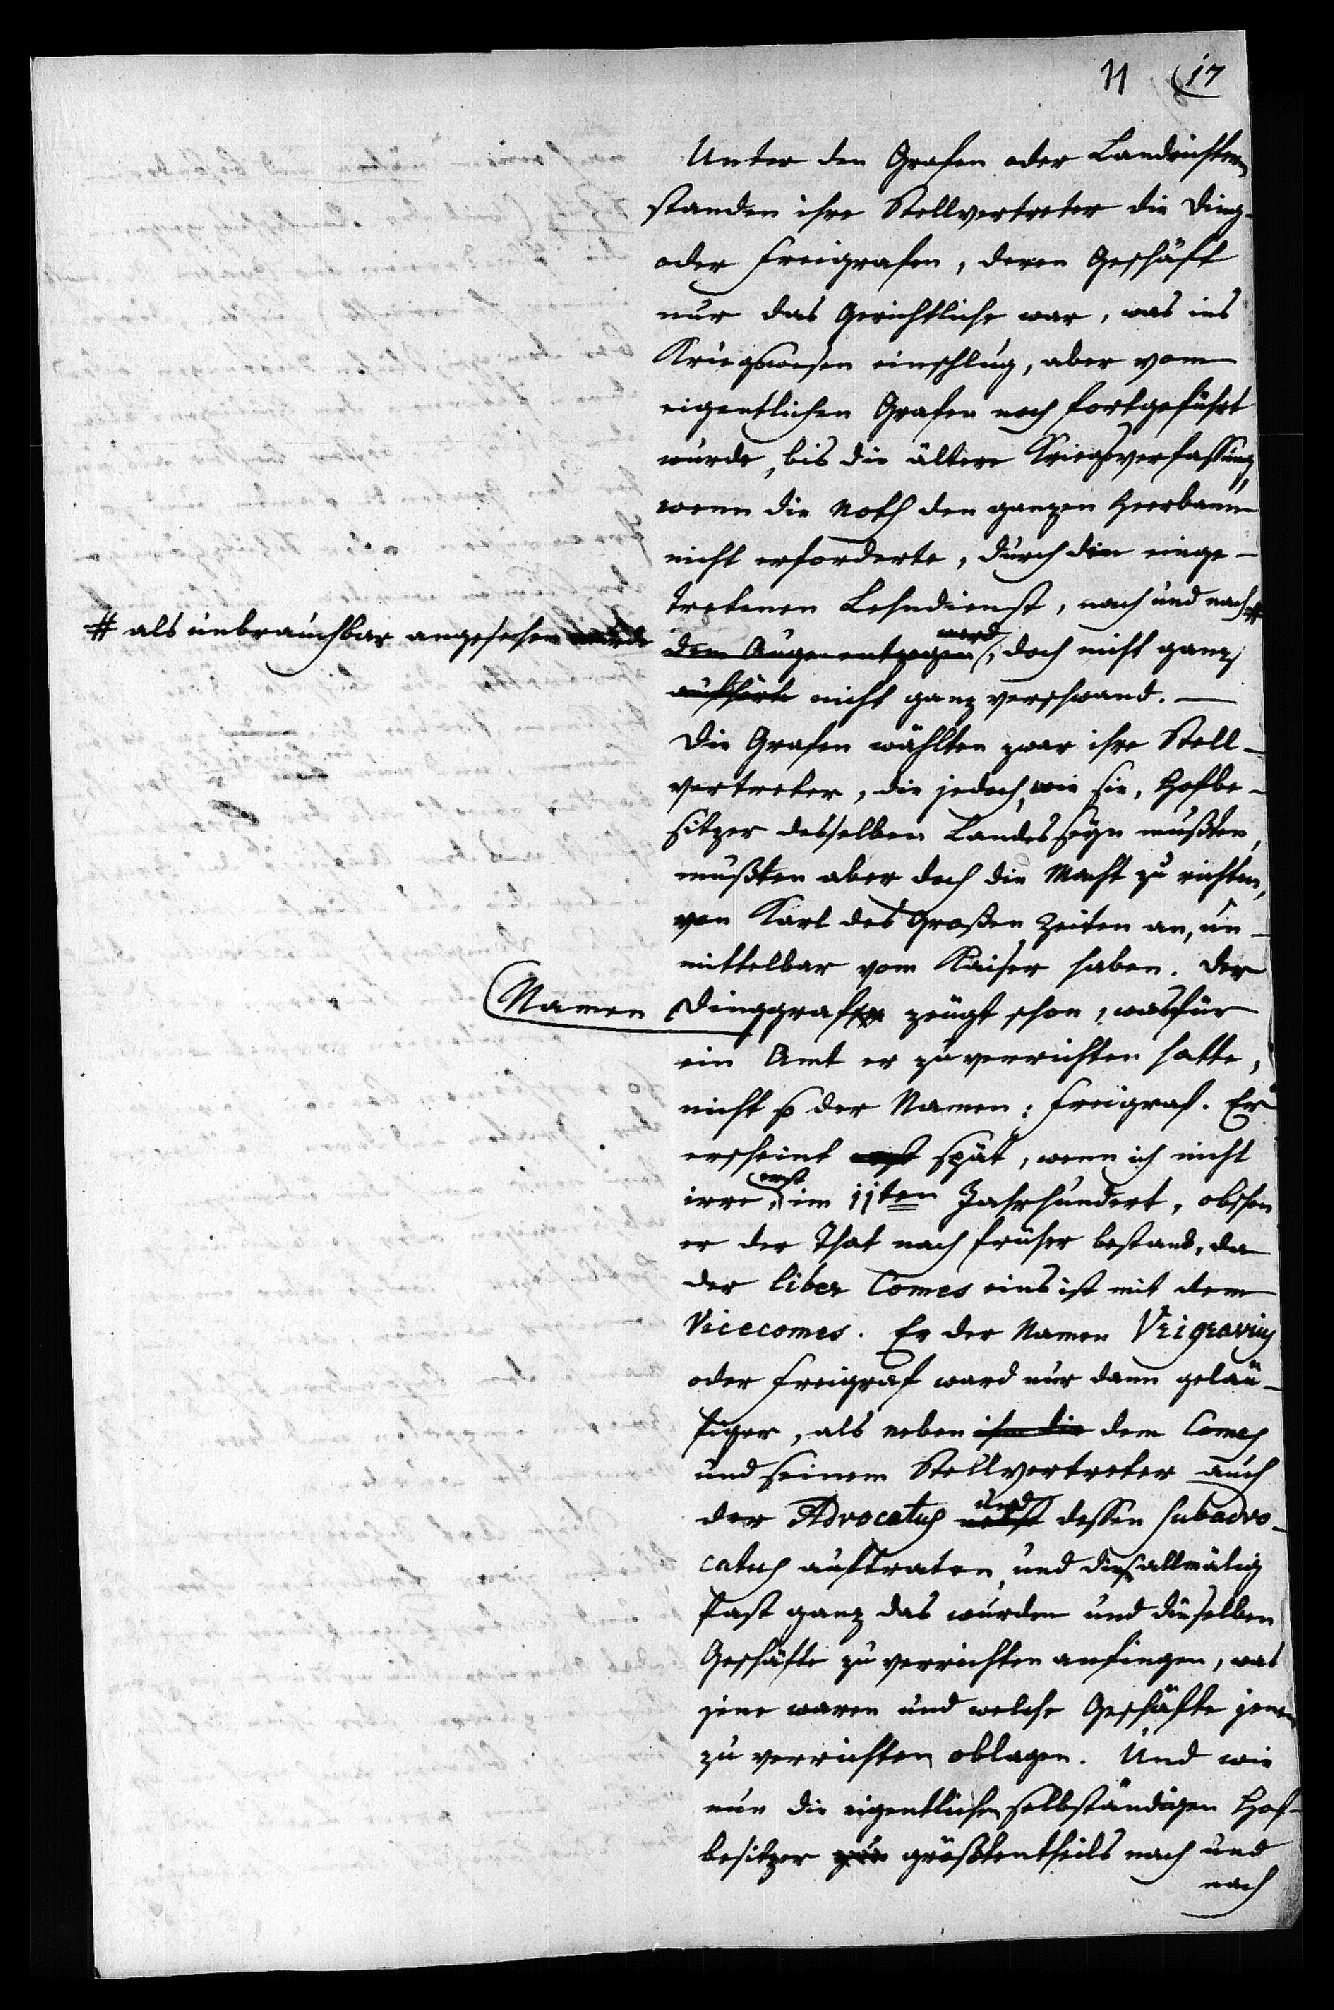 11 17
Unter den Grafen oder Landrichtern
standen ihre Stellvertreter die Ding-
oder Freigrafen, deren Geschäft
nur das Gerichtliche war, was ins
Kriegswesen einschlug, aber vom
eigentlichen Grafen noch fortgeführt
wurde, bis die ältere Kriegsverfassung,
wenn die Noth den ganzen Heerbann
nicht erforderte, durch den einge-
tretenen Lehndienst, nach und nach #
# als unbrauchbar angesehen wurde
dem Auge entzogen ward, doch nicht ganz
aufhörte nicht ganz verschwand. —
Die Grafen wählten zwar ihre Stell-
vertreter, die jedoch, wie sie, Hofbe-
sitzer desselben Landes seyn mußten,
mußten aber doch die Macht zu richten,
von Karl des Großen Zeiten an, un-
mittelbar vom Kaiser haben. Der
Namen Dinggraf zeugt schon, was für
ein Amt er zu verrichten hatte,
nicht so der Namen: Freigraf. Er
erscheint erst spät, wenn ich nicht
irre, erst im 11ten Jahrhundert, obschon
er der That nach früher bestand, da
der liber Comes eins ist mit dem
Vicecomes. Er der Namen Vrigravius
oder Freigraf ward nur dann geläu-
figer, als neben ihm die dem Comes
und seinem Stellvertreter auch
der Advocatus nebst und dessen Subadvo-
catus auftraten, und dieß allmälig
fast ganz das wurden und dieselben
Geschäfte zu verrichten anfingen, was
jene waren und welche Geschäfte jenen
zu verrichten oblagen. Und wie
nun die eigentlichen selbständigen Hof-
besitzer größtentheils nach und
nach